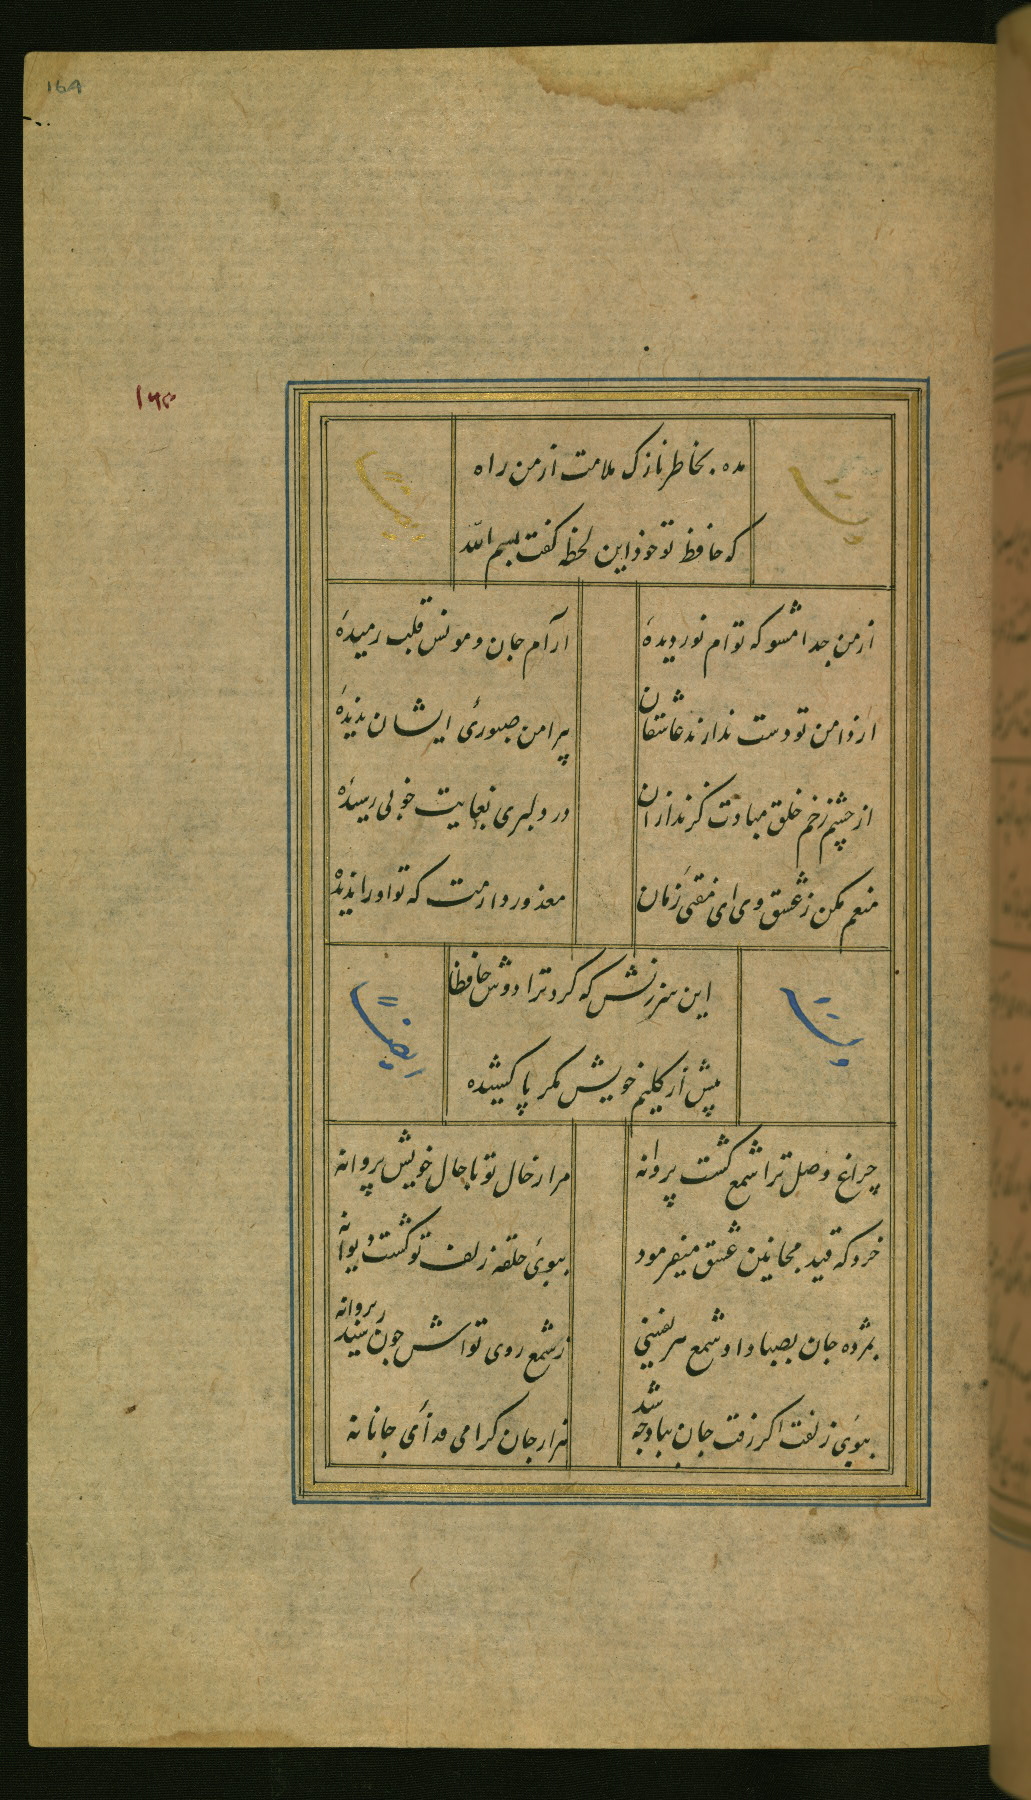 169
مده بخاطر نازک ملامت از من راه
که حافظ تو خود این لحظه گفت بسم الله
از من جدا مشو که توام نور دیدهٔ
ارآم جان و مونس قلب رمیدهٔ
از دامن تو دست ندارند عاشقان
پیرامن صبورئ ایشان بدیدهٔ
از چشم زخم خلق مبادت گزند از ان
در دلبری بغایت خوبی رسیدهٔ
منعم مکن ز عشق وی ای مفتئ زمان
معذور دارمت که تو اورا ندیدهٔ
این سرزنش که کرد ترا دوش حافظا
بیش از کلیم خویش مکر پا کشیده
ایضاً
چراغ وصل ترا شمع کشت پروانه
مرا ز خال تو با حال خویش پروانه
خرد که قید مجانین عشق میفرمود
ببوئ حلقه زلف تو کشت دیوانه
بمژده جان بصبا داد شمع هر نفسی
ز شمع روی تواش چون رسید پروانه
ببوی زلفت اکر رفت جان بباد چه شد
هزار جان کرامی فدائ جانانه